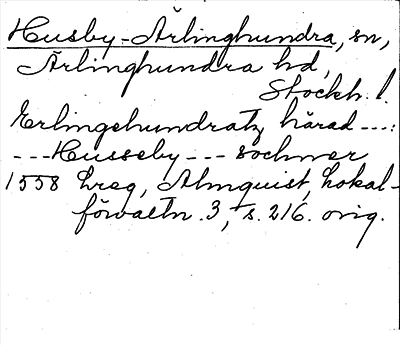 Husby-Ärlinghundra, sn,
Ärlinghundra hd,
Stockh. l.
Erlingehundratz härad ---:
--- Husseby --- sochner
1558 hreg, Almquist, Lokal-
förvaltn. 3, s. 216. orig.